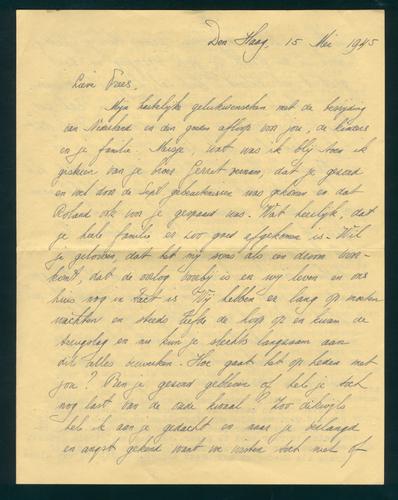 Den Haag, 15 Mei 1945
Lieve Troes.
Mijn hartelijke gelukwenschen met de bevrijding
van Nederland en den goeden afloop voor jou, de kinders
en je familie. Meisje, wat was ik blij toen ik
gisteren van je broer Gerrit vernam, dat je gezond
en wel door de gebeurtenissen was gekomen en dat
Roland ook voor je gespaard was. Wat heerlijk, dat
je heele familie er zoo goed afgekomen is. Wil
je gelooven, dat het mij soms als een droom voor-
komt, dat de oorlog voorbij is en wij leven en ons
huis nog in tact is. Wij hebben er lang op moeten
wachten en steeds de hoop op en kwam de
terugslag en nu kun je slechts langzaam aan
dit alles verwerken. Hoe gaat het op heden met
jou? Ben je gezond gebleven of heb je toch
nog last van de oude kwaal? Zoo dikwijls
heb ik aan je gedacht en naar je verlangd
en angst gekend want we wisten toch niet of